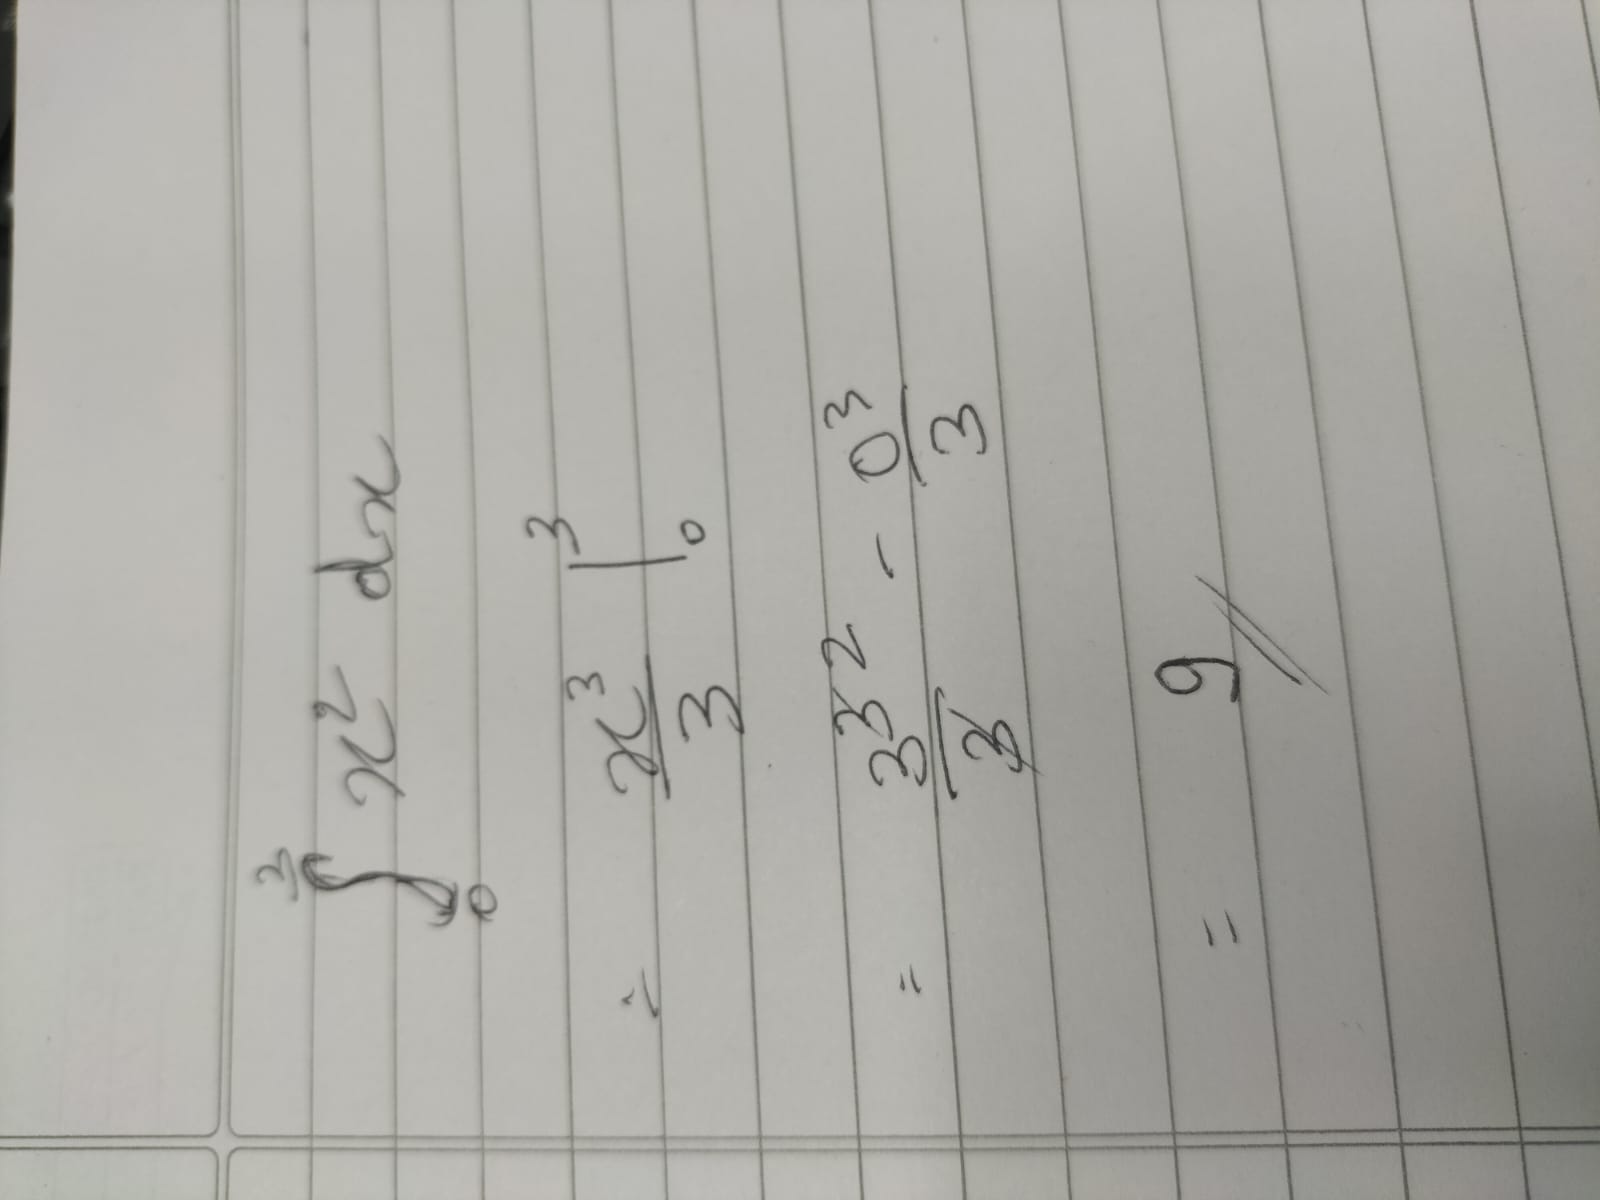 ∫₀³ x² dx
= x³/3 |₀³
= 3³ ²/3 - 0³/3
= 9//